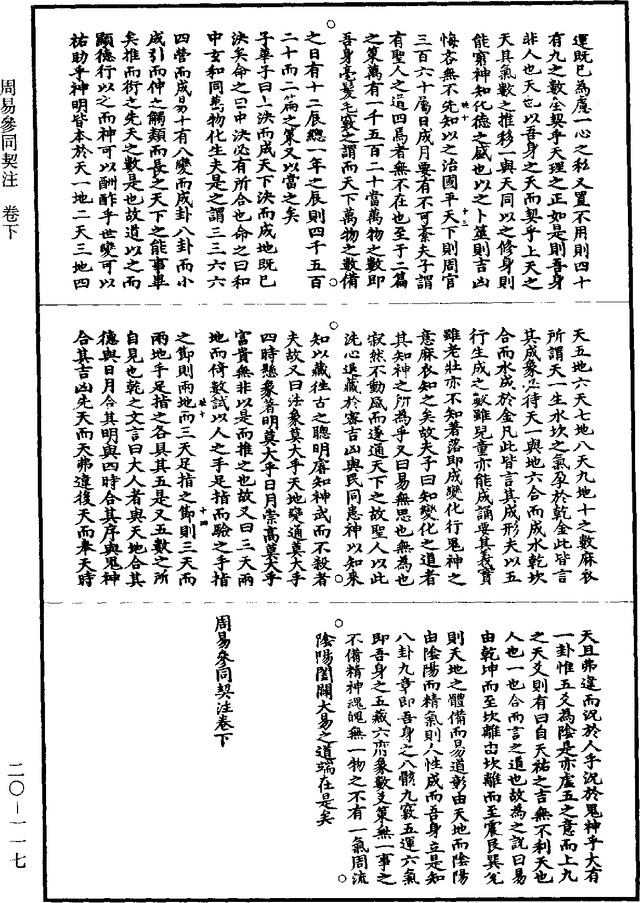 周易參同契注　卷下
二〇—一一七
運既已為屬一心之私又置不用則四十
有九之數全契乎天理之正如是則吾身
非人也天也以吾身之天而契乎上天之
天其氣數之推移一與天同以之修身則
能窮神知化德之盛也以之卜筮則吉凶
悔吝無不先知以之治國平天下則周官
三百六十屬日成月要有不可紊夫子謂
有聖人之道四焉者無不在也至于二篇
之策萬有一千五百二十當萬物之數即
吾身毫髮毛竅之謂而天下萬物之數備
之日有十二辰總一年之辰則四千五百
二十而二篇之策又以當之矣
子華子曰上決而成天下決而成地既已
決矣命之曰中決必有所合也命之曰和
中女和同萬物化生夫是之謂三三六六
四營而成易十有八變而成卦八卦而小
成引而伸之觸類而長之天下之能事畢
矣推而衍之先天之數是也故道以之而
顯德行以之而神可以酬酢乎世變可以
祐助乎神明皆本於天一地二天三地四
天五地六天七地八天九地十之數麻衣
所謂天一生水坎之氣孕於乾金此皆言
其成象必待天一與地六合而成水乾坎
合而水成於金凡此皆言其成形夫以五
行生成之數雖兒童亦能成誦要其義實
雖老壯亦不知著落即成變化行鬼神之
意麻衣知之矣故夫子曰知變化之道者
其知神之所為乎又曰易無思也無為也
寂然不動感而遂通天下之故聖人以此
洗心退藏於密吉凶與民同患神以知來
知以藏往古之聰明睿知神武而不殺者
夫故又曰法象莫大乎天地變通莫大乎
四時懸象著明莫大乎日月崇高莫大乎
富貴無非以是而推之也故又曰三天兩
地而倚數試以人之手足指而驗之手指
之節則兩地而三天足指之節則三天而
兩地手足指之各具其五是又五數之所
自見也乾之文言曰大人者與天地合其
德與日月合其明與四時合其序與鬼神
合其吉凶先天而天弗違後天而奉天時
天且弗違而況於人乎況於鬼神乎大有
一卦惟五爻為陰是亦虛五之意而上九
之天爻則有曰自天祐之吉無不利天也
人也一也合而言之道也故為之說曰易
由乾坤而至坎離由坎離而至震艮巽兌
則天地之體備而易道彰由天地而陰陽
由陰陽而精氣則人性成而吾身立是知
八卦九章即吾身之八骸九竅五運六氣
即吾身之五藏六府象數爻策無一事之
不備精神魂魄無一物之不有一氣周流
陰陽闔闢大易之道端在是矣
周易參同契注卷下